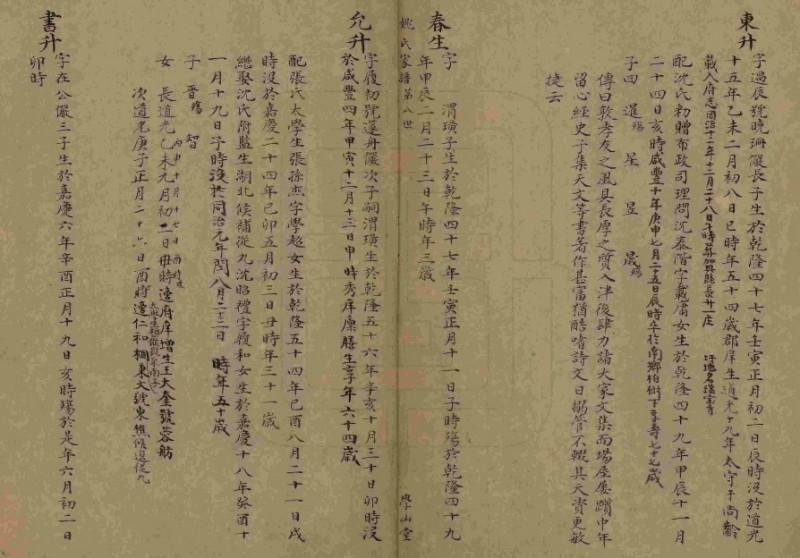 東升
字過辰號曉珊儼長子生於乾隆四十七年壬寅正月初二日辰時沒於道光
十五年乙未二月初八日巳時年五十四歲郡庠生道光十九年太守于尚齡
載入府志同治十一年十二月二十八日子時葬加興縣長廿一庄
配沈氏勅贈布政司理問沈泰階字載庸女生於乾隆四十九年甲辰十一月
二十四日亥時咸豐十年庚申七月二十五日辰時卒於南鄉柏樹下享壽七十七歲
子四 暹殤 星 昱 晟殤
傳曰敦孝友之風具長厚之質入泮後肆力諸大家文集而場屋屢躓中年
留心經史子集天文等書著作甚富猶酷嗜詩文日搦管不輟其天資更敏
捷云
春生
字 渭璜子生於乾隆四十七年壬寅正月十一日子時殤於乾隆四十九
年甲辰二月二十三日午時年三歲
姚氏家譜第八世
學山堂
允升
字履初號蓬舟儼次子嗣渭璜生於乾隆五十六年辛亥十月三十日卯時沒
於咸豐四年甲寅十二月十三日申時秀庠廩膳生享年六十四歲
配張氏太學生張孫杰字學超女生於乾隆五十四年己酉八月二十一日戌
時沒於嘉慶二十四年己卯五月初三日丑時年三十一歲
繼娶沈氏附監生湖北候補從九沈昭禮字履和女生於嘉慶十八年癸酉十
一月十九日子時沒於同治元年閏八月二十三日 時年五十歲
子 晉殤 智
女 長道光乙未九月初二日丑時適府庠增生王大奎號容舫
次道光庚子正月二十六日酉時適仁和櫃東文號東樵候選從九
書升
字在公儼三子生於嘉慶六年辛酉正月十九日亥時殤於是年六月初二日
卯時